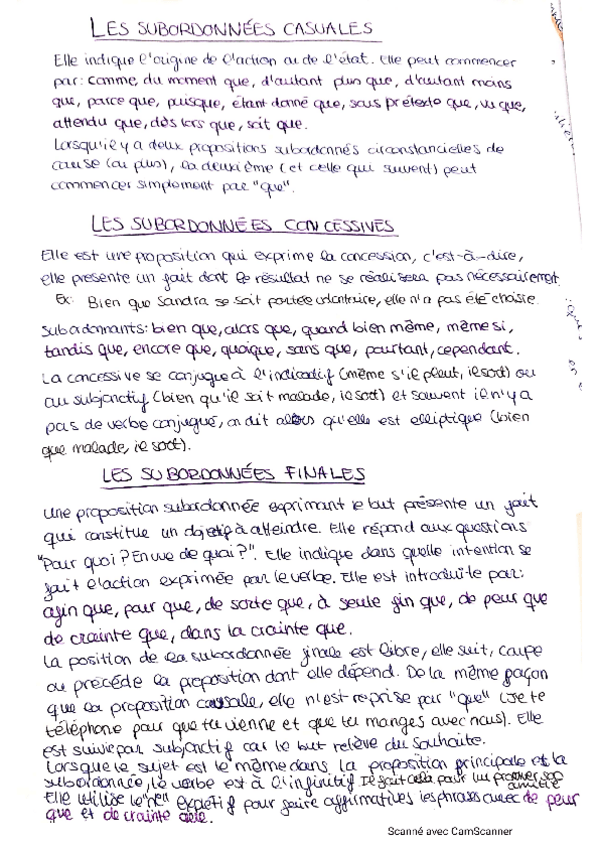 LES SUBORDONNÉES CASUALES
Elle indique l'origine de l'action ou de l'état. Elle peut commencer
par: comme, du moment que, d'autant plus que, d'autant moins
que, parce que, puisque, étant donné que, sous prétexte que, vu que,
attendu que, dès lors que, soit que.
Lorsqu'il y a deux propositions subordonnés circonstancielles de
cause (ou plus), la deuxième (et celle qui suivent) peut
commencer simplement par "que".
LES SUBORDONNÉES CONCESSIVES
Elle est une proposition qui exprime la concession, c'est-à-dire,
elle presente un fait dont le résultat ne se réalisera pas nécessairement.
Ex: Bien que Sandra se soit portée volontaire, elle n'a pas été choisie.
Subordonnants: bien que, alors que, quand bien même, même si,
tandis que, encore que, quoique, sans que, pourtant, cependant.
La concessive se conjugue à l'indicatif (même s'il pleut, il sort) ou
au subjonctif (bien qu'il soit malade, il sort) et souvent il n'y a
pas de verbe conjugué, on dit alors qu'elle est elliptique (bien
que malade, il sort).
LES SUBORDONNÉES FINALES
Une proposition subordonnée exprimant le but présente un fait
qui constitue un objetif à atteindre. Elle répond aux questions
"Pour quoi? En vue de quoi?". Elle indique dans quelle intention se
fait l'action exprimée par le verbe. Elle est introduite par:
afin que, pour que, de sorte que, à seule fin que, de peur que
de crainte que, dans la crainte que.
La position de la subordonnée finale est libre, elle suit, coupe
ou précède la proposition dont elle dépend. De la même façon
que la proposition causale, elle n'est reprise par "que" (Je te
téléphone pour que tu vienne et que tu manges avec nous). Elle
est suivie par subjonctif car le but relève du souhaite.
Lorsque le sujet est le même dans la proposition principale et la
subordonnée, le verbe est à l'infinitif Il fait cela pour lui prouver son
amitié
Elle utilise le "ne" expletif pour faire affirmatives les phrases avec de peur
que et de crainte que.
Scanné avec CamScanner